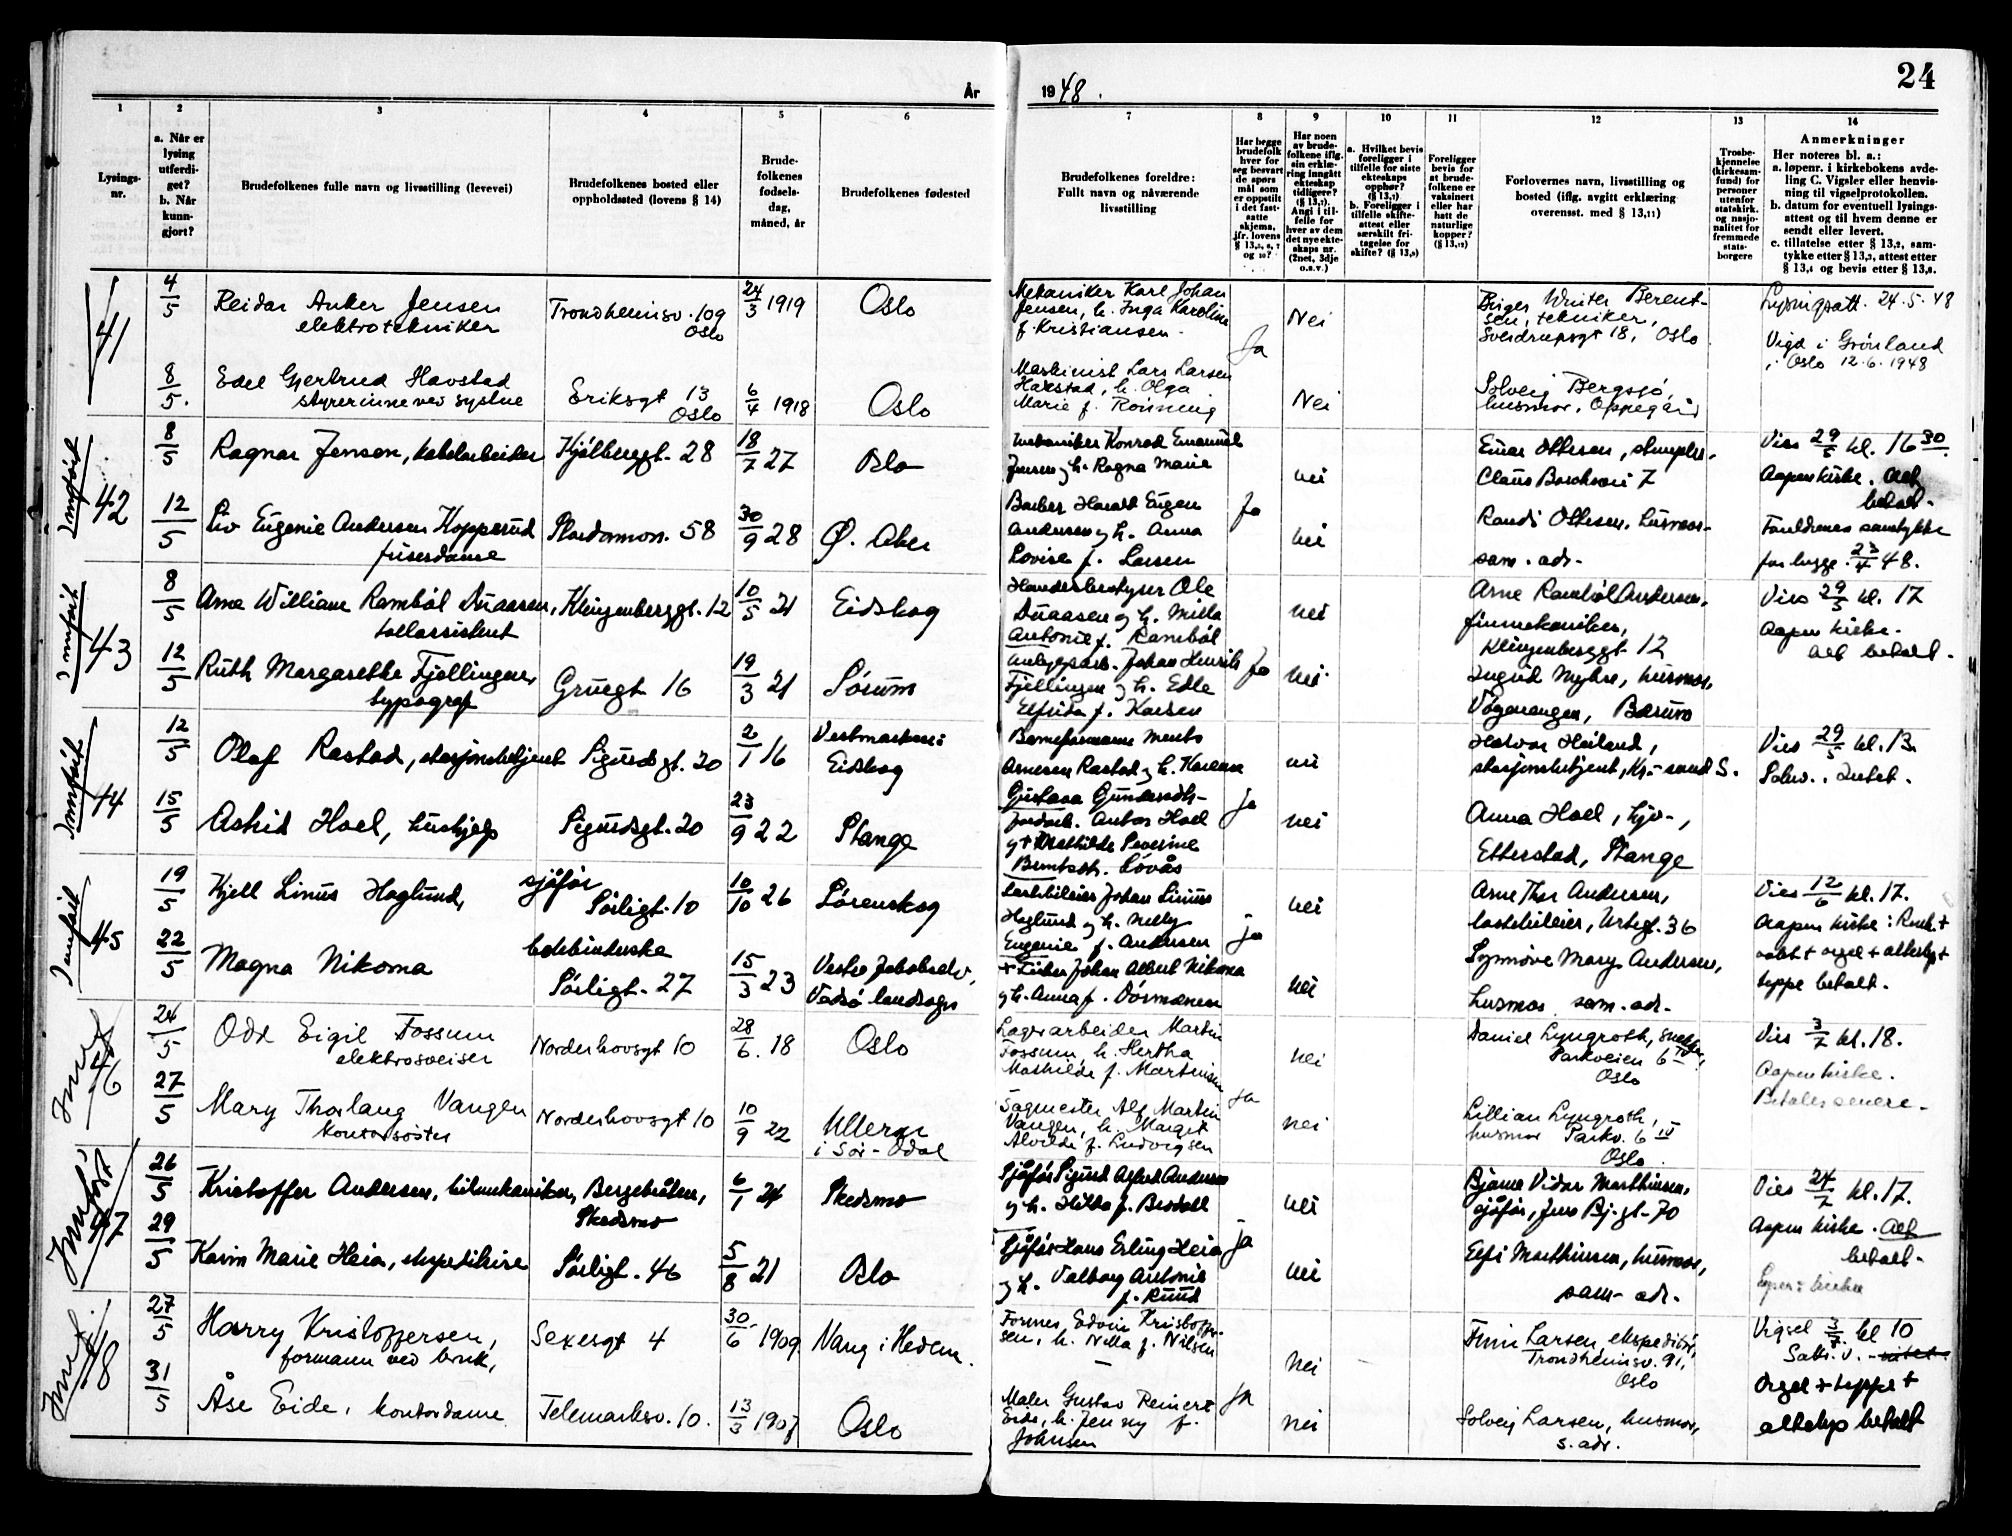 År
1948.
24
1
2
3
4
5
6
7
8
9
10
11
12
13
14
Lysings-
nr.
a. Når er
lysing
utferdi-
get?
b. Når
kunn-
gjort?
Brudefolkenes fulle navn og livsstilling (levevei)
Brudefolkenes bosted eller
oppholdssted (lovens § 14)
Brude-
folkenes
fødsels-
dag,
måned, år
Brudefolkenes fødested
Brudefolkenes foreldre:
Fullt navn og nåværende
livsstilling
Har begge
brudefolk
hver for
seg besvart
de spørs
mål som
er oppstilt
i det fast-
satte
skjema,
jfr. lovens
Har noen
av brude-
folkene iflg.
sin erklæ-
ring inngått
ekteskap
tidligere?
Angi i til-
felle for
hver av dem
det nye ekte-
skaps nr.
(2net, 3dje
o.s.v.)
a. Hvilket bevis
foreligger i
tilfelle for siste
ekteskaps
opphør?
b. Foreligger i
tilfelle skifte-
attest eller
særskilt fri-
tagelse for
skifte?
Foreligger
bevis for
at brude-
folkene er
vaksinert
eller har
hatt de
naturlige
kopper?
Forlovernes navn, livsstilling og
bosted (iflg. avgitt erklæring
overensst. med § 13,11)
Trosbe-
kjennelse
(kirkesam-
fund) for
personer
utenfor
statskirk.
og nasjo-
nalitet for
fremmede
stats-
borgere
Anmerkninger
Her noteres bl. a.:
a. løpenr. i kirkebokens avde-
ling C. Vigsler eller henvis-
ning til vigselprotokollen.
b. datum for eventuell lysings-
attest og til hvem denne er
sendt eller levert.
c. tillatelse etter § 13,2, sam-
tykke etter § 13,3, attest etter
§ 13,6 og bevis etter § 13,8.
41
4/5
Reidar Anker Jensen
elektrotekniker
Trondheimsv. 109
Oslo
24/3 1919
Oslo
Mekaniker Karl Johan
Jensen, h. Inga Karoline
f. Kristiansen.
Ja
Nei
Birger Winter Berent-
sen, tekniker,
Sverdrupsgt 18, Oslo
Lysingsatt. 24.5.48
Vigd i Grønland
i Oslo 12.6.1948
8/5.
Edel Gjertrud Havstad
styrerinne ved systue
Eriksgt 13
Oslo
6/4 1918
Oslo
Maskinist Lars Larsen
Havstad, h. Olga
Marie f. Rönning
Nei
Solveig Bergsjø,
husmor, Oppegård
Innført
42
8/5
Ragnar Jensen, kabelarbeider
Kjølberggt. 28
18/7 27
Oslo
Mekaniker Konrad Emanuel
Jensen og h. Ragna Marie
nei
Einar Ottesen,
Claus Borchsvei 7
Vies 29/5 kl. 16 30.
Aapen kirke. Alt
betalt.
12/5
Liv Eugenie Andersen Kopperud
friserdame
58
30/9 28
Ø. Aker
Barber Harald Eugen
Andersen og h. Anna
Lovise f. Larsen
Ja
nei
Randi Ottesen, husmor.
sam. adr.
Foreldrenes samtykke
for begge. 23/4 48.
Innført
43
8/5
Arne William Rambøl Duaasen,
tollassistent
Klingenberggt. 12
10/5 21
Eidskog
Handelsbestyrer Ole
Duaasen og h. Milla
Antonie f. Rambøl
nei
Arne Rambøl Andersen,
finmekaniker,
Klingenberggt 12
Vies 29/5 kl. 17
Aapen kirke.
Alt betalt.
12/5
Ruth Margarethe Fjellingen,
typograf
Gruegt 16
19/3 21
Sørum
Anleggsarb. Johan Henrik
Fjellingen og h. Edle
Elfrida f. Karlsen
Ja
nei.
Ingrid Myhre, husmor,
Bærum
Innført
44
12/5
Olaf Rastad, stasjonsbetjent
Sigurdsgt. 20
2/1 16
Vestmarka i
Eidskog
Baneformann Merts
Arnesen Rastad og h. Karense
Gustava Gundersdtr.
nei
Halvor Heiland,
stasjonsbetjent, Kr.-sand S.
Vies 29/5 kl. 13.
15/5
Astrid Hoel, hushjelp
Sigurdsgt. 20
23/9 22
Stange
Jordarb. Anton Hoel
og + Mathilde Severine
Berntsdt. Løvås
ja
nei
Anna Hoel,
Etterstad, Stange
Innført
45
19/5
Kjell Linus Haglund,
sjåfør
Sörligt. 10
10/10 26
Lørenskog
Lastebileier Johan Linus
Haglund og h. Nelly
Eugenie f. Andersen
ja
nei
Arne Thor Andersen,
lastebileier, Urtegt. 36
Vies 12/6 kl. 17.
Aapen kirke:
teppe betalt.
22/5
Magna Nikoma
bokbinderske
Sörligt. 27
15/3 23
Vestre Jakobselv,
Vadsø landsogn
+ Fisker Johan Albert Nikoma
og h. Anna f.
nei
Synnøve Mary Andersen,
husmor sam. adr.
Innf
46
24/5
Odd Eigil Fossum
elektrosveiser
Norderhovsgt 10
28/6. 18
Oslo
Lagerarbeider Martin
Fossum, h. Hertha
Mathilde f. Martinsen
Ja
nei
Daniel Lyngroth, snekker,
Parkveien 6 IV
Oslo
Vies 3/7 kl. 18.
Aapen kirke.
Betales senere.
27/5
Mary Thorlaug Vangen
kontorsøster
Norderhovsgt 10
10/9 22
Ullern
i Sør-Odal
Sagmester Alf Martin
Vangen, h. Margit
Alvilde f. Ludvigsen
nei
Lillian Lyngroth,
husmor Parkv. 6 IV
Oslo
Innført
47
26/5
Kristoffer Andersen, bilmekaniker,
Bergebråten,
Skedsmo
6/1 24
Skedsmo
Sjåfør Sigurd Albert Andersen
og h. Hilda f. Brodall
nei
Bjarne Vidar Marthinsen,
sjåfør, Jens Bj. gt. 70
Vies 24/7 kl. 17.
Aapen kirke. Alt
betalt.
29/5
Karin Marie Heia, ekspeditrise
Sörligt. 46
5/8 21
Oslo
Sjåfør Hans Erling Heia
og h. Valborg Antonie
f. Ruud
ja
nei
Elfi Marthinsen, husmor,
sam. adr.
Innf
48
27/5
Harry Kristoffersen,
formann ved bruk,
Sexesgt 4
30/6 1909
Vang i Hedm.
Former Edvin Kristoffer-
sen, h. Nilla f. Nilsen
nei
Finn Larsen, ekspeditør,
Trondheimsv. 91,
Oslo
Vigsel 3/7. kl 10
Orgel + teppe +
alterlys betalt
31/5
Åse Eide, kontordame
Telemarksv. 10.
13/3 1907
Oslo
Maler Gustav Reinert
Eide, h. Jenny f.
Johnsen
Ja
nei
Solveig Larsen, husmor,
s. adr.